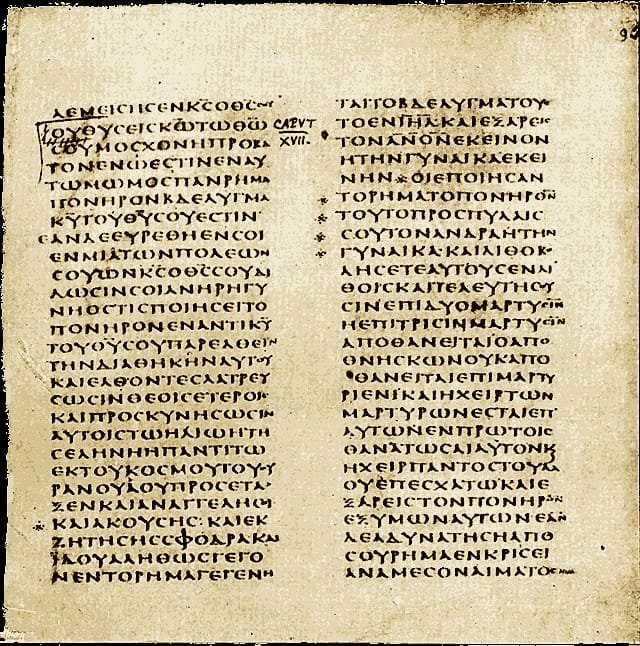 96
ΑΕΜΕΙϹΗϹΕΝΚ̅Ϲ̅ΟΘ̅Ϲ̅
ΟΥΘΥϹΕΙϹΚ̅Ω̅ΤΩΘ̅Ω̅
ϹΟΥΜΟϹΧΟΝΗΠΡΟΒΑ
ΤΟΝΕΝΩΕϹΤΙΝΕΝΑΥ
ΤΩΜΩΜΟϹΠΑΝΡΗΜΑ
ΠΟΝΗΡΟΝΒΔΕΛΥΓΜΑ
Κ̅Υ̅ΤΟΥΘ̅Υ̅ϹΟΥΕϹΤΙΝ
ΕΑΝΔΕΕΥΡΕΘΗΕΝϹΟΙ
ΕΝΜΙΑΤΩΝΠΟΛΕΩΝ
ϹΟΥΩΝΚ̅Ϲ̅ΟΘ̅Ϲ̅ϹΟΥΔΙ
ΔΩϹΙΝϹΟΙΑΝΗΡΗΓΥ
ΝΗΟϹΤΙϹΠΟΙΗϹΕΙΤΟ
ΠΟΝΗΡΟΝΕΝΑΝΤΙΚ̅Υ̅
ΤΟΥΘ̅Υ̅ϹΟΥΠΑΡΕΛΘΕΙΝ
ΤΗΝΔΙΑΘΗΚΗΝΑΥΤΟΥ
ΚΑΙΕΛΘΟΝΤΕϹΛΑΤΡΕΥ
ϹΩϹΙΝΘΕΟΙϹΕΤΕΡΟΙϹ
ΚΑΙΠΡΟϹΚΥΝΗϹΩϹΙΝ
ΑΥΤΟΙϹΤΩΗΛΙΩΗΤΗ
ϹΕΛΗΝΗΗΠΑΝΤΙΤΩ
ΕΚΤΟΥΚΟϹΜΟΥΤΟΥΟΥ
ΡΑΝΟΥΑΟΥΠΡΟϹΕΤΑ
ΞΕΝΚΑΙΑΝΑΓΓΕΛΗϹΟΙ
※ΚΑΙΑΚΟΥϹΗϹ:ΚΑΙΕΚ
ΖΗΤΗϹΗϹϹΦΟΔΡΑΚΑΙ
ΙΔΟΥΑΛΗΘΩϹΓΕΓΟ
ΝΕΝΤΟΡΗΜΑΓΕΓΕΝΗ
CAPVT
XVII.
ΤΑΙΤΟΒΔΕΛΥΓΜΑΤΟΥ
ΤΟΕΝΙΗΛΚΑΙΕΞΑΡΕΙϹ
ΤΟΝΑΝΟΝΕΚΕΙΝΟΝ
ΗΤΗΝΓΥΝΑΙΚΑΕΚΕΙ
ΝΗΝ※ΟΙΕΠΟΙΗϹΑΝ
※ΤΟΡΗΜΑΤΟΠΟΝΗΡΟΝ
※ΤΟΥΤΟΠΡΟϹΠΥΛΑΙϹ
※ϹΟΥΤΟΝΑΝΔΡΑΗΤΗΝ
※ΓΥΝΑΙΚΑ:ΚΑΙΛΙΘΟΒΟ
ΛΗϹΕΤΕΑΥΤΟΥϹΕΝΛΙ
ΘΟΙϹΚΑΙΤΕΛΕΥΤΗϹΟΥ
ϹΙΝΕΠΙΔΥΟΜΑΡΤΥϹΙΝ
ΗΕΠΙΤΡΙϹΙΝΜΑΡΤΥϹΙΝ
ΑΠΟΘΑΝΕΙΤΑΙΟΑΠΟ
ΘΝΗϹΚΩΝΟΥΚΑΠΟ
ΘΑΝΕΙΤΑΙΕΠΙΜΑΡΤΥ
ΡΙΕΝΙΚΑΙΗΧΕΙΡΤΩΝ
ΜΑΡΤΥΡΩΝΕϹΤΑΙΕΠ
ΑΥΤΩΝΕΝΠΡΩΤΟΙϹ
ΘΑΝΑΤΩϹΑΙΑΥΤΟΝΚ
ΗΧΕΙΡΠΑΝΤΟϹΤΟΥΛΑ
ΟΥΕΠΕϹΧΑΤΩΚΑΙΕ
ΞΑΡΕΙϹΤΟΝΠΟΝΗΡΟΝ
ΕΞΥΜΩΝΑΥΤΩΝΕΑΝ
ΔΕΑΔΥΝΑΤΗϹΗΑΠΟ
ϹΟΥΡΗΜΑΕΝΚΡΙϹΕΙ
ΑΝΑΜΕϹΟΝΑΙΜΑΤΟϹ